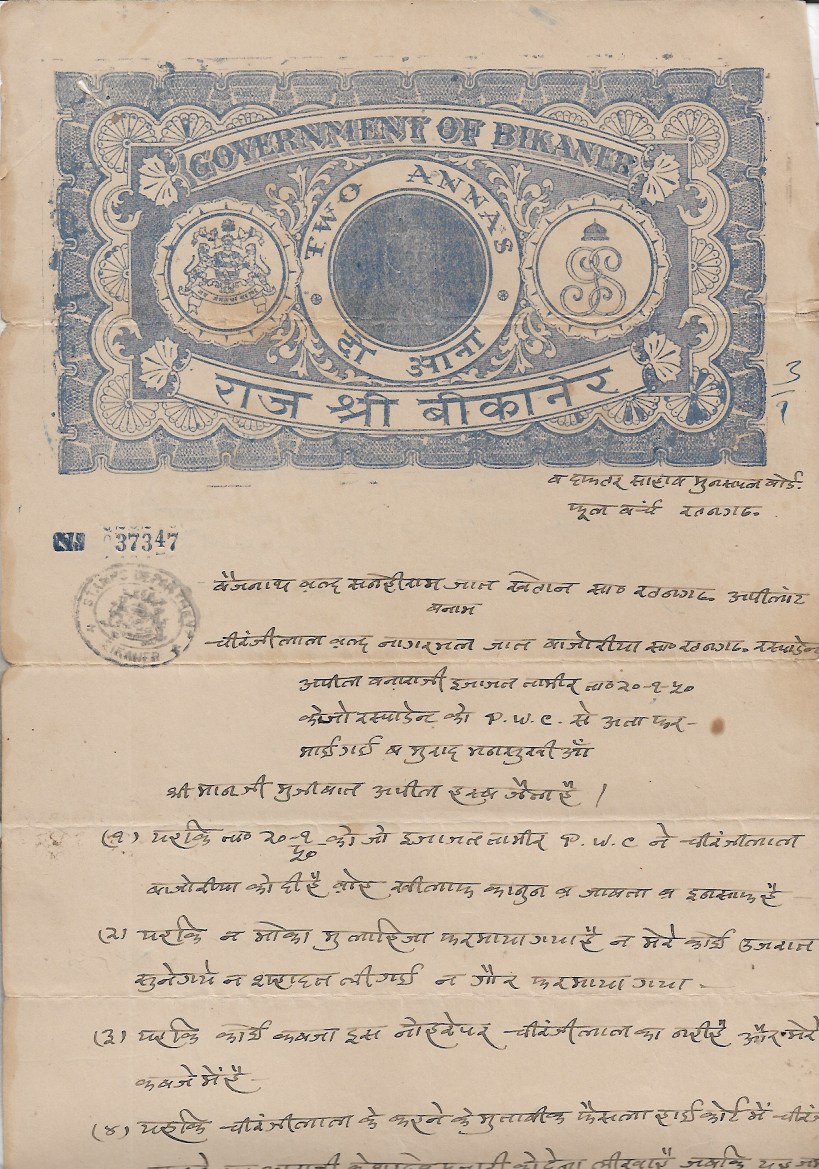 GOVERNMENT OF BIKANER
TWO ANNAS
दो आना
राज श्री बीकानेर
3/1
व दफतर साहाव मुनसपल बोर्ड.
फूल बेंच रतनगढ.
37347
STAMPS DEPARTMENT
BIKANER
बैजनाथ वल्द सनेहीराम जात खेतान सा० रतनगढ. अपीलांट
बनाम
चीरंजीलाल वल्द नागरमल जात बाजोरीया सा० रतनगढ. रस्पाडेन
अपील बनाराजी इजाजत तामीर ता० २०-१-५०
के जो रस्पाडेन्ट को P.W.C. से अता फर-
माई गई व मुराद मनसुखी आँ
श्री मान जी मुजीबात अपील हस्ब जैल है ।
(१) यह कि ता० २०-१-५० को जो इजाजत तामीर P.W.C ने चीरंजीलाल
बाजोरीया को दी है वोह खीलाफ कानुन व जाबता व इनसाफ है
(२) यह कि न मोका मुलाहिजा फरमाया गया है न मेरे कोई उजरात
सुने गये न शहादत ली गई न गौर फरमाया गया -
(३) यह कि कोई कबजा इस नोहरे पर चीरंजीलाल का नही है और मेरे
कबजे में है -
(४) यह कि चीरंजीलाल के कहने के मुताबीक फैसला हाई कोर्ट में चीरंजी
को देना लीखा है जबकि यह